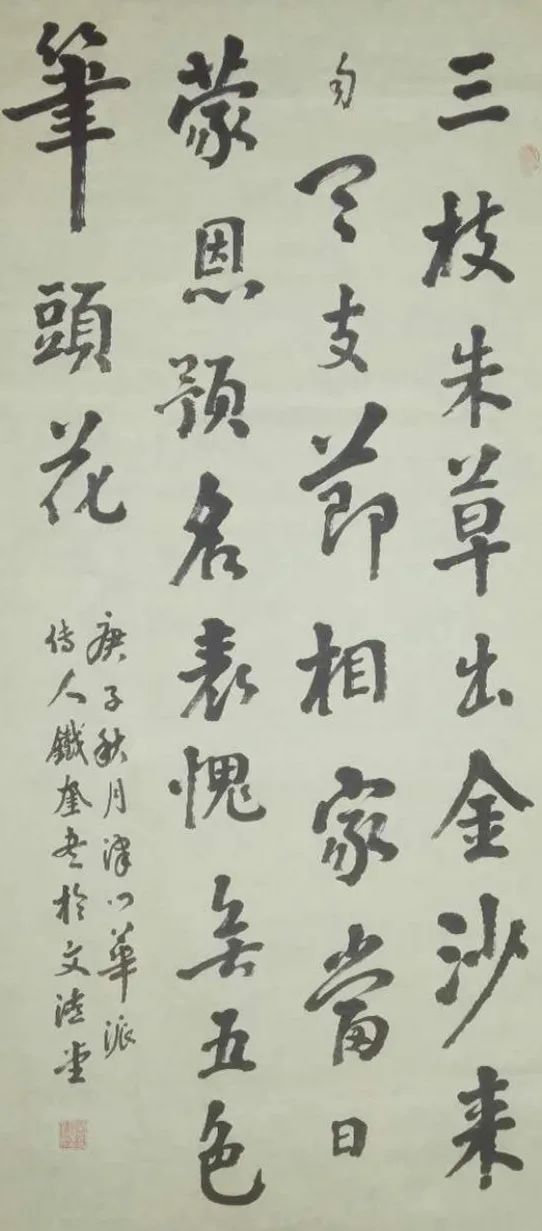 三枝朱草出金沙来
自天支節相家當日
蒙恩預名表愧無五色
筆頭花
庚子秋月津門華派
傳人鐵奎書於文堂